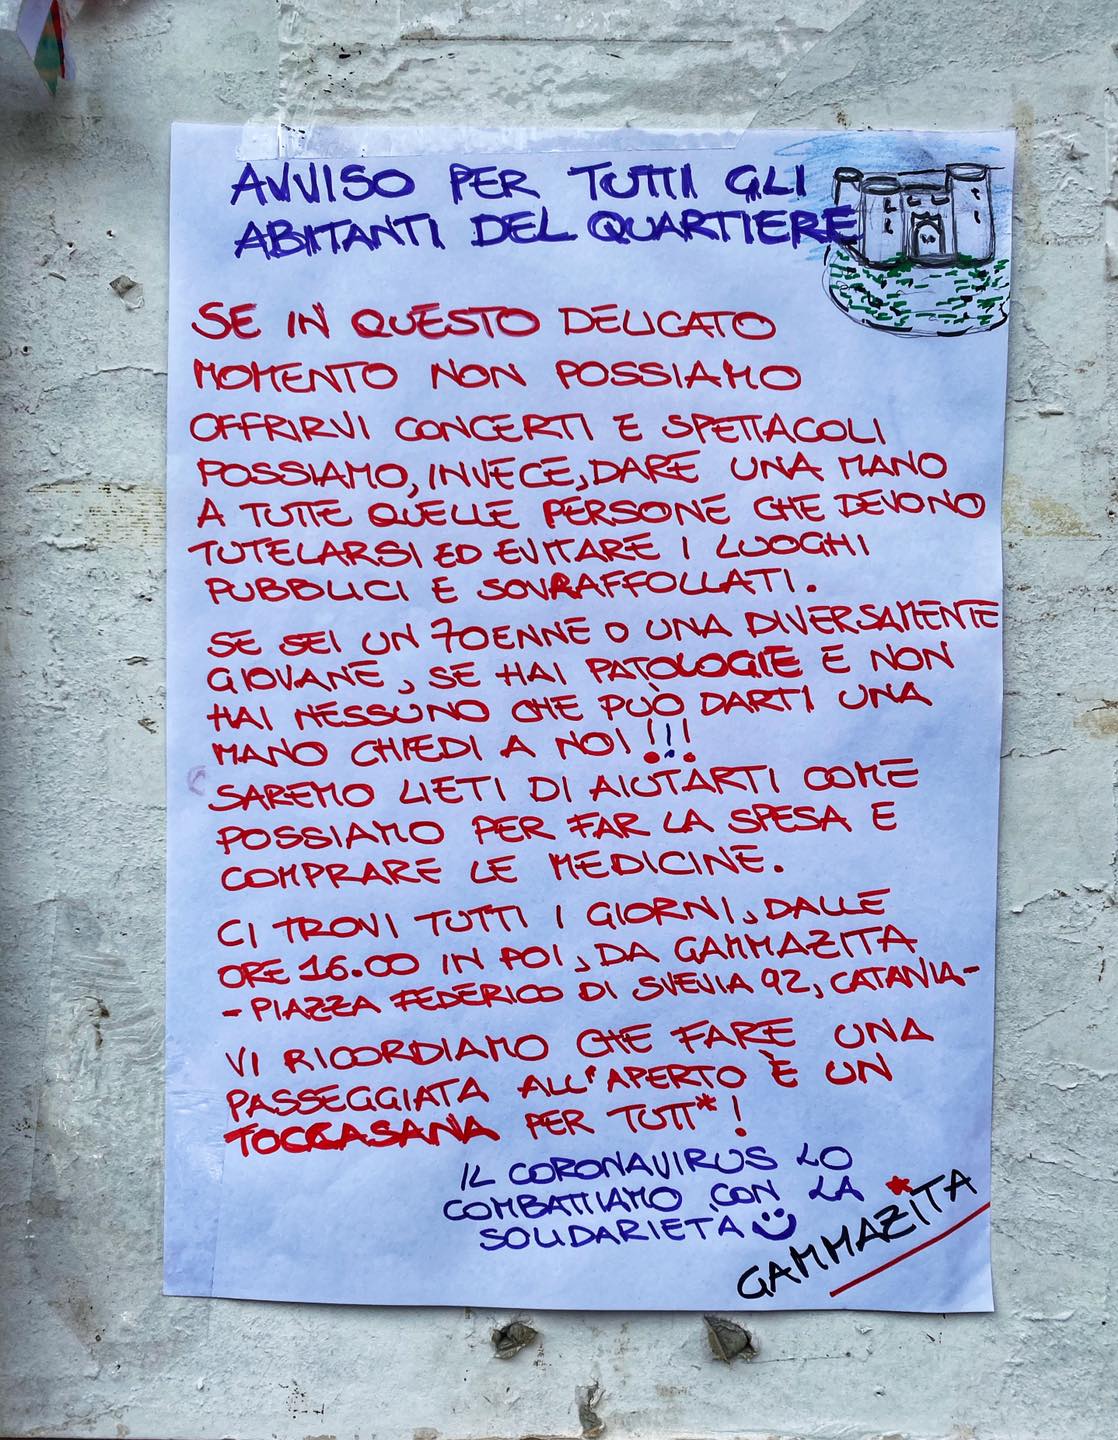 AVVISO PER TUTTI GLI
ABITANTI DEL QUARTIERE
SE IN QUESTO DELICATO
MOMENTO NON POSSIAMO
OFFRIRVI CONCERTI E SPETTACOLI
POSSIAMO, INVECE, DARE UNA MANO
A TUTTE QUELLE PERSONE CHE DEVONO
TUTELARSI ED EVITARE I LUOGHI
PUBBLICI E SOVRAFFOLLATI.
SE SEI UN 70ENNE O UNA DIVERSAMENTE
GIOVANE, SE HAI PATOLOGIE E NON
HAI NESSUNO CHE PUÒ DARTI UNA
MANO CHIEDI A NOI!!!
SAREMO LIETI DI AIUTARTI COME
POSSIAMO PER FAR LA SPESA E
COMPRARE LE MEDICINE.
CI TROVI TUTTI I GIORNI, DALLE
ORE 16.00 IN POI, DA GAMMAZITA
- PIAZZA FEDERICO DI SVEVIA 92, CATANIA -
VI RICORDIAMO CHE FARE UNA
PASSEGGIATA ALL'APERTO È UN
TOCCASANA PER TUTT*!
IL CORONAVIRUS LO
COMBATTIAMO CON LA
SOLIDARIETÀ
GAMMAZITA